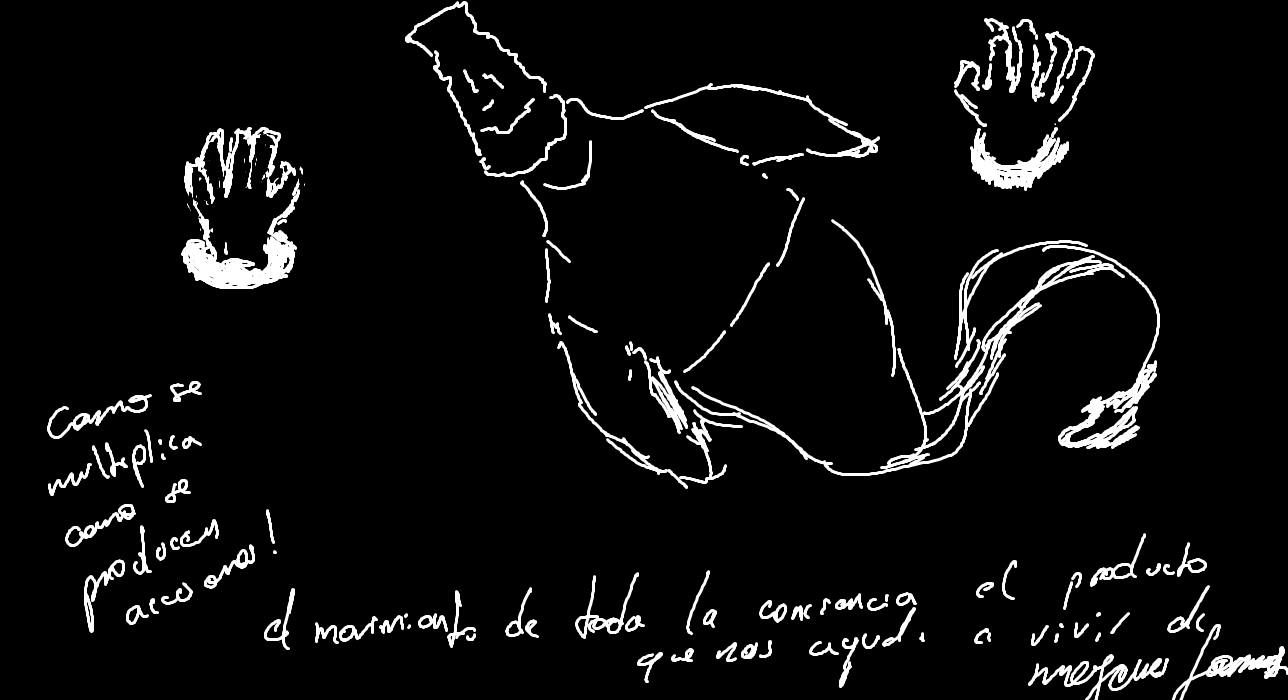 Como se
multiplica
como se
producen
accesorios!
el movimiento de toda la conciencia el producto
que nos ayuda a vivir de